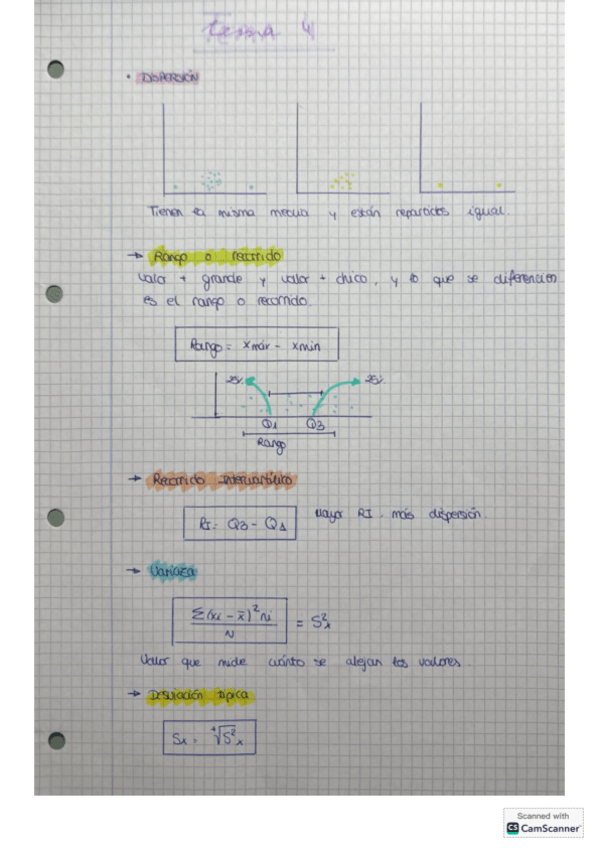 Tema 4
• DISPERSIÓN
Tienen la misma media y están repartidos igual.
→ Rango o recorrido
Valor + grande y valor + chico, y lo que se diferencian
es el rango o recorrido.
Rango = xmáx - xmin
25% 25%
Q1 Q3
Rango
→ Recorrido Intercuartílico
RI = Q3 - Q1 Mayor RI, más dispersión.
→ Varianza
Σ(xi - x̄)² ni / N = S²x
Valor que mide cuánto se alejan los valores.
→ Desviación típica
Sx = ⁺√S²x
Scanned with
CS CamScanner